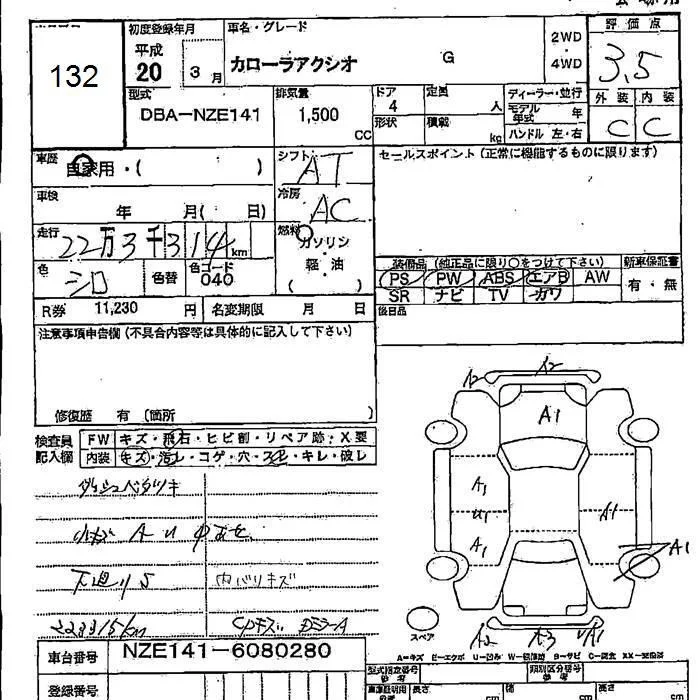 132
初度登録年月
平成
20 3月
車名・グレード
カローラアクシオ G
2WD
・
4WD
評価点
3.5
外装 内装
C C
型式
DBA-NZE141
排気量
1,500
CC
ドア
4
定員
人
形状
積載
kg
ディーラー・並行
モデル
年式
年
ハンドル 左・右
車歴
自家用・( )
シフト
AT
車検
年 月( 日)
冷房
AC
セールスポイント(正常に機能するものに限ります)
走行
22万3千314km
燃料
ガソリン
軽・油
( )
色
シロ
色替
色コード
040
装備品(純正品に限り○をつけて下さい)
PS PW ABS エアB AW
SR ナビ TV カワ
新車保証書
有・無
R券 11,230 円
名変期限 月 日
後日品
注意事項申告欄(不具合内容等は具体的に記入して下さい)
修復歴 有 (箇所 )
検査員
記入欄
FW キズ・飛石・ヒビ割・リペア跡・X要
内装 キズ・汚レ・コゲ・穴・スレ・キレ・破レ
ダッシュベタツキ
小キズ A U
下廻りS
内バリキズ
223315km
A2 A2
A1
A1
U1
A1
A1
A1
スペア
A2 A3 UA1
A=キズ E=エクボ U=凹み
車台番号 NZE141-6080280
登録番号
型式指定番号
類別区分番号
長さ
cm